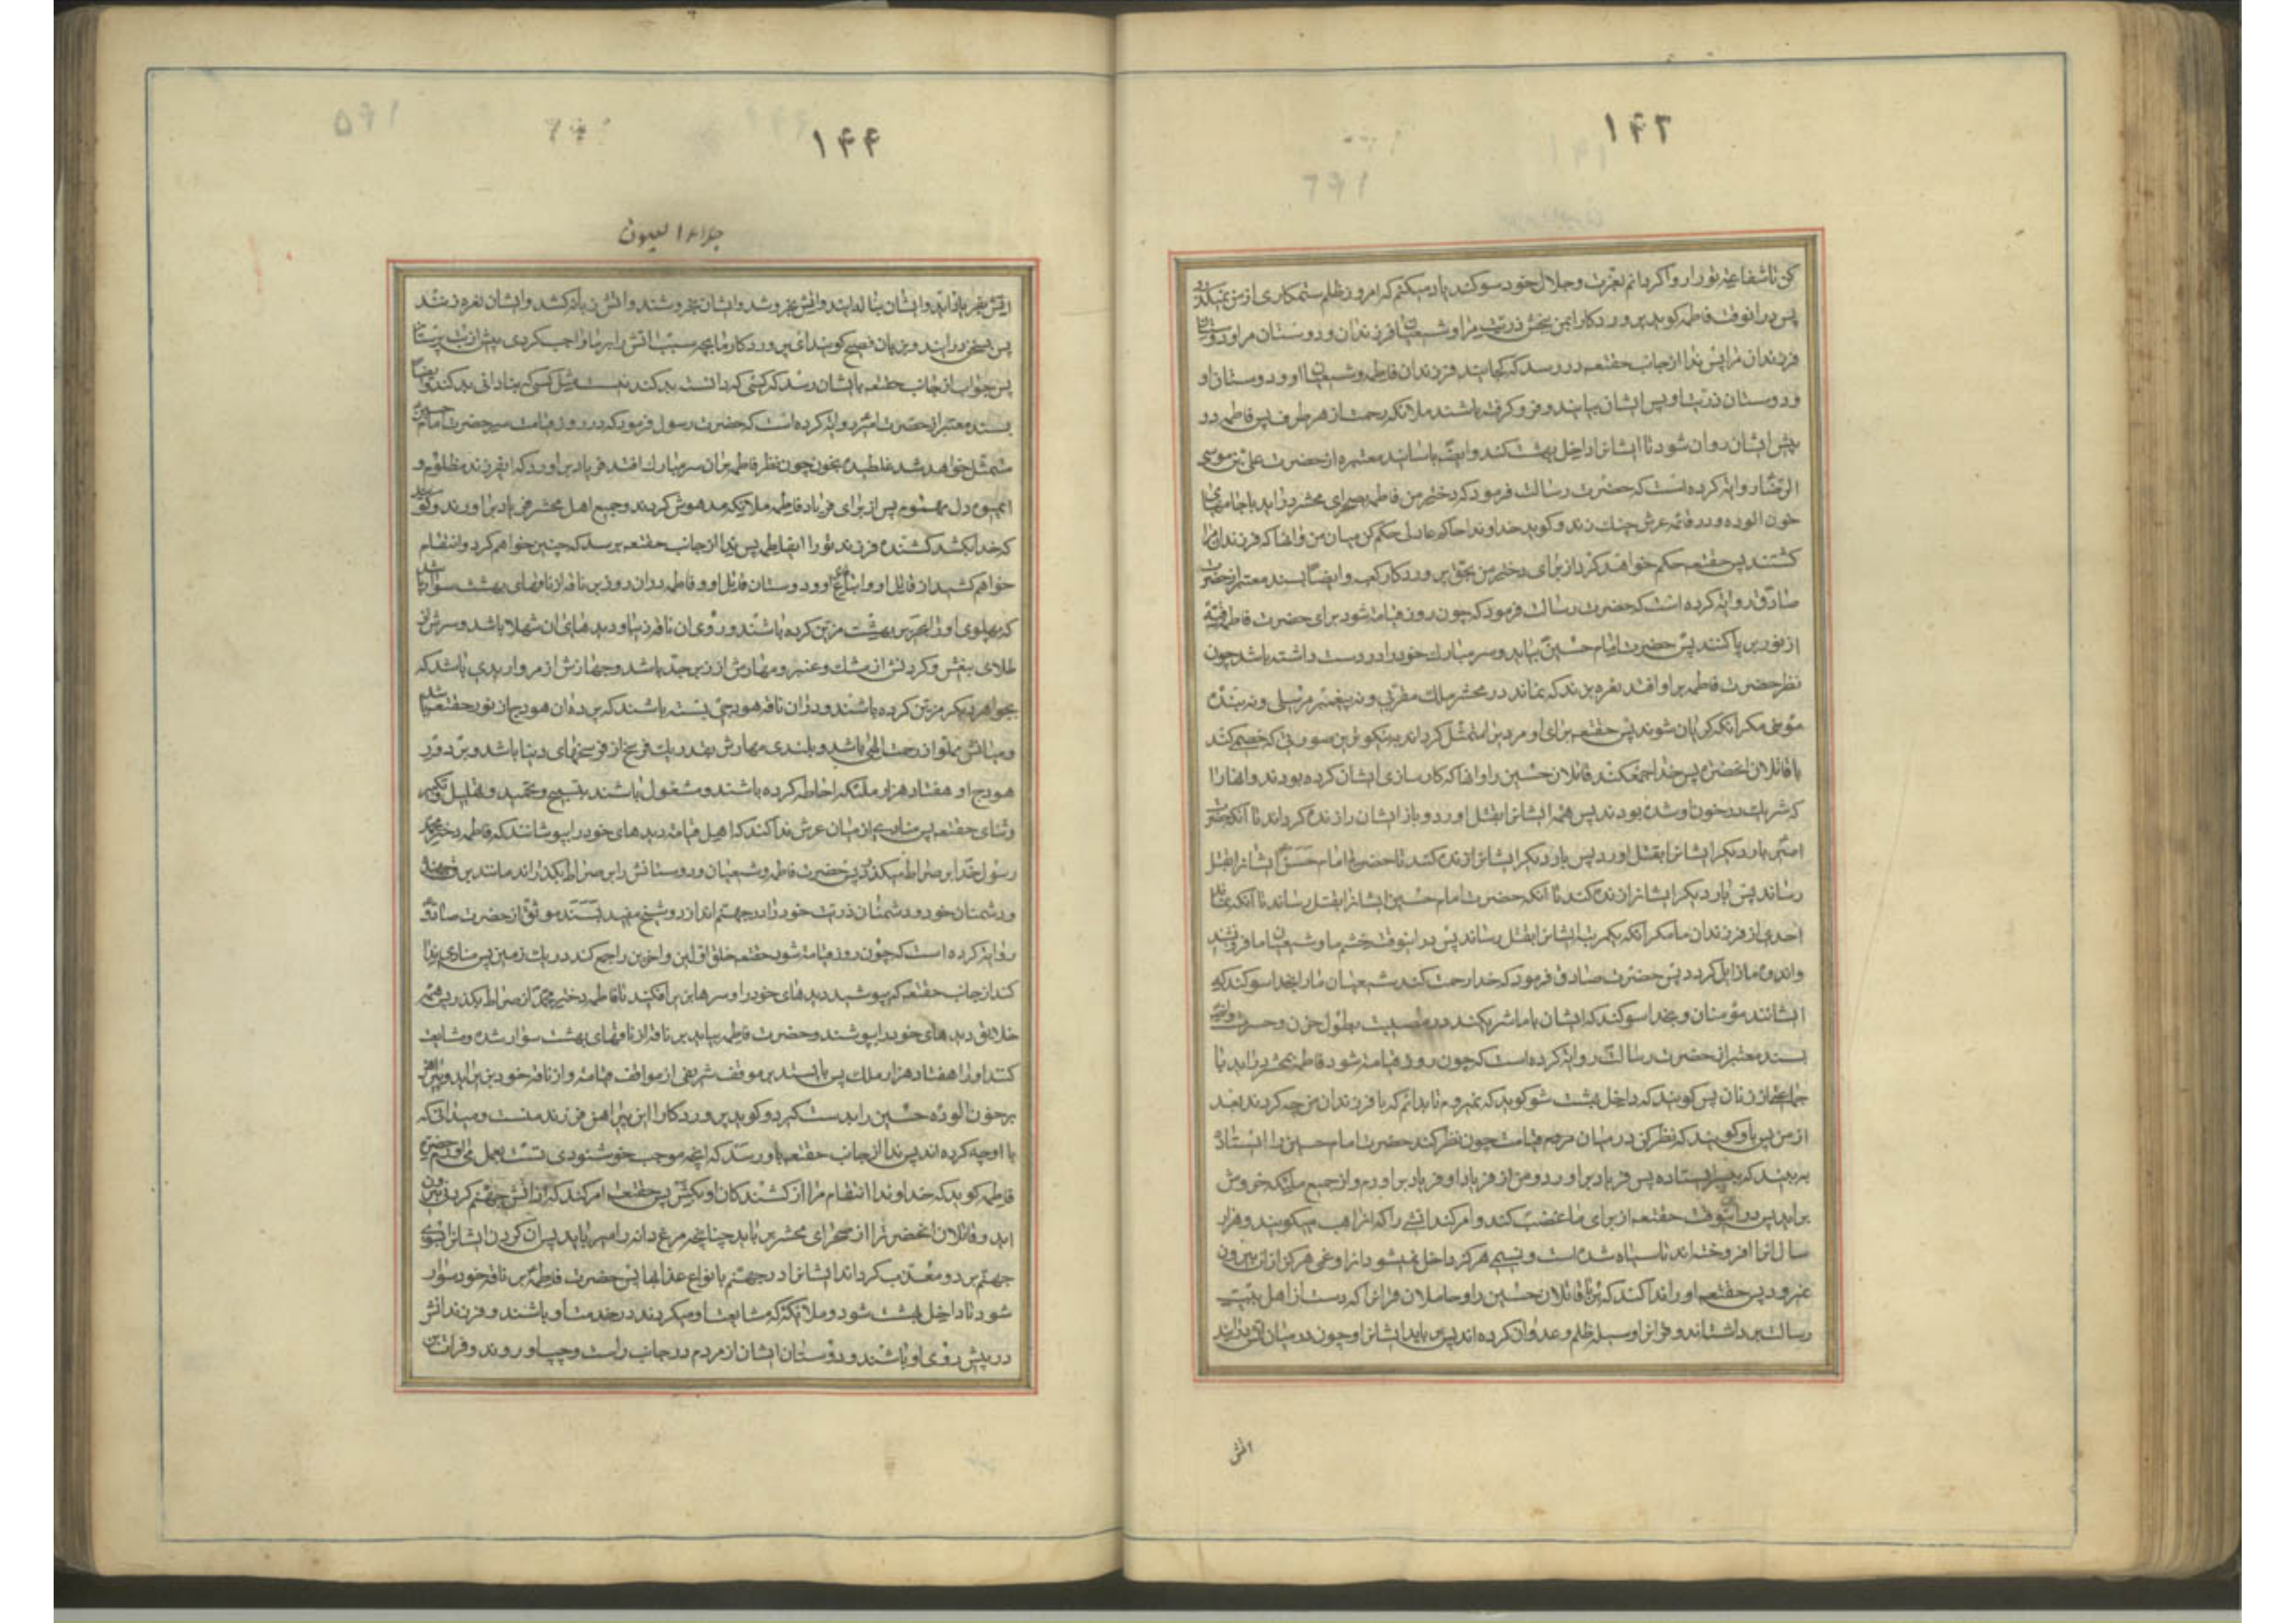 ۱۴۳
کن تا شفاعت تو را روا کردانم بعزت و جلال خود سوکند یاد میکنم که امروز ظلم ستمکاری از من نمیکذرد
پس در انوقت فاطمه کوید پروردکارا بمن بخش ذریت مرا و شیعیان فرزندان و دوستان مرا و دوستان
فرزندان مرا پس ندا از جانب حقتعه در رسد که کجایند فرزندان فاطمه و شیعیان او و دوستان او
و دوستان ذریت او پس ایشان بیایند و فرو کرفته باشند ملائکه رحمت از هر طرف پس فاطمه در
پیش ایشان روان شود تا ایشانرا داخل بهشت کند و ایضا باسانید معتبره از حضرت علی بن موسی
الرضا روایه کرده است که حضرت رسالت فرمود که دخترم فاطمه بصحرای محشر در اید با جامهای
خون الوده و در قائمه عرش چنک زند و کوید خداوندا حاکم عادل حکم کن میان من و انها که فرزندان مرا
کشتند پس حقتعه حکم خواهد کرد از برای دختر من بحق پروردکار کعبه و ایضا بسند معتبر از حضرت
صادق روایه کرده است که حضرت رسالت فرمود که چون روز قیامه شود برای حضرت فاطمه قبه
از نور بر پا کنند پس حضرت امام حسین بیاید و سر مبارک خود را در دست داشته باشد چون
نظر حضرت فاطمه بر او افتد نعره بزند که نماند در محشر ملک مقربی و نه پیغمبر مرسلی و نه بنده
مؤمنی مکر انکه کریان شوند پس حقتعه برای او مردیرا متمثل کرداند به نیکوترین صورتی که خصمی کند
با قاتلان انحضرت پس خدا جمع کند قاتلان حسین را و انها که کار سازی ایشان کرده بودند و انها را
که شریک در خون او شده بودند پس همه ایشانرا بقتل اورد و باز ایشان را زنده کرداند تا انکه حضرت
امیر بار دیکر ایشانرا بقتل اورد پس بار دیکر ایشانرا زنده کند تا حضرت امام حسن ایشانرا بقتل
رساند پس بار دیکر ایشانرا زنده کند تا انکه حضرت امام حسین ایشانرا بقتل رساند تا انکه نماند
احدی از فرزندان ما مکر انکه یکمرتبه ایشانرا بقتل رساند پس در انوقت خشم ما و شیعیان ما فرو نشیند
و اندوه ما زایل کردد پس حضرت صادق فرمود که خدا رحمت کند شیعیان ما را بخدا سوکند که
ایشانند مؤمنان و بخدا سوکند که ایشان با ما شریکند در مصیبت بطول حزن و حسرت و ایضا
بسند معتبر از حضرت رسالت روایه کرده است که چون روز قیامه شود فاطمه بمحشر در اید با
جماعتی از زنان پس کویند که داخل بهشت شو کوید که نمیروم تا بدانم که با فرزندان من چه کردند بعد
از من پس باو کویند که نظر کن در میان مردم قیامت چون نظر کند حضرت امام حسین را ایستاده
به بیند که بیسر ایستاده پس فریاد براورد و من از فریاد او فریاد براورم و از جمیع ملیکه خروش
براید پس در انوقت حقتعه از برای ما غضب کند و امر کند اتشی را که انرا هب هب میکویند و هزار
سال انرا افروخته اند تا سیاه شده است و نسیمی هرکز داخل نمیشود انرا و غمی هرکز از ان بیرون
نمیرود پس حقتعه او را ندا کند که بربا قاتلان حسین را و حاملان قرانرا که دست از اهل بیت
رسالت برداشته اند و قرانرا وسیله ظلم و عدوان کرده اند پس برباید ایشانرا و چون در میان اتش درایند
اتش
۱۴۴
جلاء العیون
اتش بفریاد اید و ایشان بناله ایند و اتش بخروشد و ایشان بخروشند و اتش زبانه کشد و ایشان نعره زنند
پس بسخن درایند و بزبان فصیح کویند ای پروردکار ما بچه سبب اتش را بر ما واجب کردی پیش از بت پرستان
پس جواب از جانب حقتعه بایشان رسد که کسی که دانسته بد کند نیست مثل کسی که بنادانی بد کند و ایضا
بسند معتبر از حضرت امیر روایه کرده است که حضرت رسول فرمود که در روز قیامت سر حضرت امام حسین
متمثل خواهد شد غلطیده بخون چون نظر فاطمه بران سر مبارک افتد فریاد براورد که ایفرزند مظلوم و
ایمیوه دل مهموم پس از برای فریاد فاطمه ملائیکه مدهوش کردند و جمیع اهل محشر فریاد براورند و کویند
که خدا بکشد کشنده فرزند تو را ایفاطمه پس ندا از جانب حقتعه برسد که چنین خواهم کرد و انتقام
خواهم کشید از قاتل او و اتباع او و دوستان قاتل او و فاطمه دران روز بر ناقه از ناقهای بهشت سوار باشد
که پهلوی او را بحریر بهشت مزین کرده باشند و روی ان ناقه زیبا و دیدهای ان شهلا باشد و سرش از
طلای بیغش و کردنش از مشک و عنبر و مهارش از زبرجد باشد و جهازش از مروارید باشد که
بجواهر دیکر مزین کرده باشند و بران ناقه هودجی بسته باشند که پرده ان هودج از نور حقتعه باشد
و میانش مملو از رحمت الهی باشد و بلندی مهارش بقدر یک فرسخ از فرسخهای دنیا باشد و بر دور
هودج او هفتاد هزار ملئکه احاطه کرده باشند و مشغول باشند بتسبیح و تحمید و تهلیل و تکبیر
و ثنای حقتعه پس منادی از میان عرش ندا کند که اهل قیامه دیدهای خود را بپوشانند که فاطمه دختر محمد
رسول خدا بر صراط میکذرد پس حضرت فاطمه و شیعیان و دوستانش را بر صراط بکذراند مانند برق جهنده
و دشمنان خود و دشمنان ذریت خود را در جهنم اندازد و شیخ مفید بسند موثق از حضرت صادق
روایه کرده است که چون روز قیامه شود حقتعه خلق اولین و اخرین را جمع کند در یک زمین پس منادی ندا
کند از جانب حقتعه که بپوشید دیدهای خود را و سرها بزیر افکنید تا فاطمه دختر محمد از صراط بکذرد پس همه
خلائق دیدهای خود را بپوشند و حضرت فاطمه بیاید بر ناقه از ناقهای بهشت سوار شده و مشایعت
کنند او را هفتاد هزار ملک پس بایستد بر موقف شریفی از مواقف قیامه و از ناقه خود بزیر اید و پیراهن
پرخون الوده حسین را بدست کیرد و کوید پروردکارا این پیراهن فرزند منست و میدانی که
با او چه کرده اند پس ندا از جانب حقتعه باو رسد که انچه موجب خوشنودی تست بعمل می اورم حضرت
فاطمه کوید که خداوندا انتقام مرا از کشندکان او بکش پس حقتعه امر کند که از اتش جهنم کردنی بیرون
اید و قاتلان انحضرت را از صحرای محشر برباید چنانچه مرغ دانه را میرباید پس ان کردن ایشانرا بسوی
جهنم برد و معذب کرداند ایشانرا در جهنم بانواع عذابها پس حضرت فاطمه بر ناقه خود سوار
شود تا داخل بهشت شود و ملائکه که مشایعت او میکردند در خدمت او باشند و فرزندانش
در پیش روی او باشند و دوستان ایشان از مردم در جانب راست و چپ او روند و فرات بن